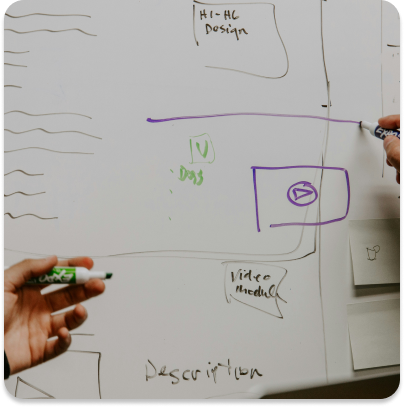 HI-HC
Design
V
Dogs
Video
Modul
Description